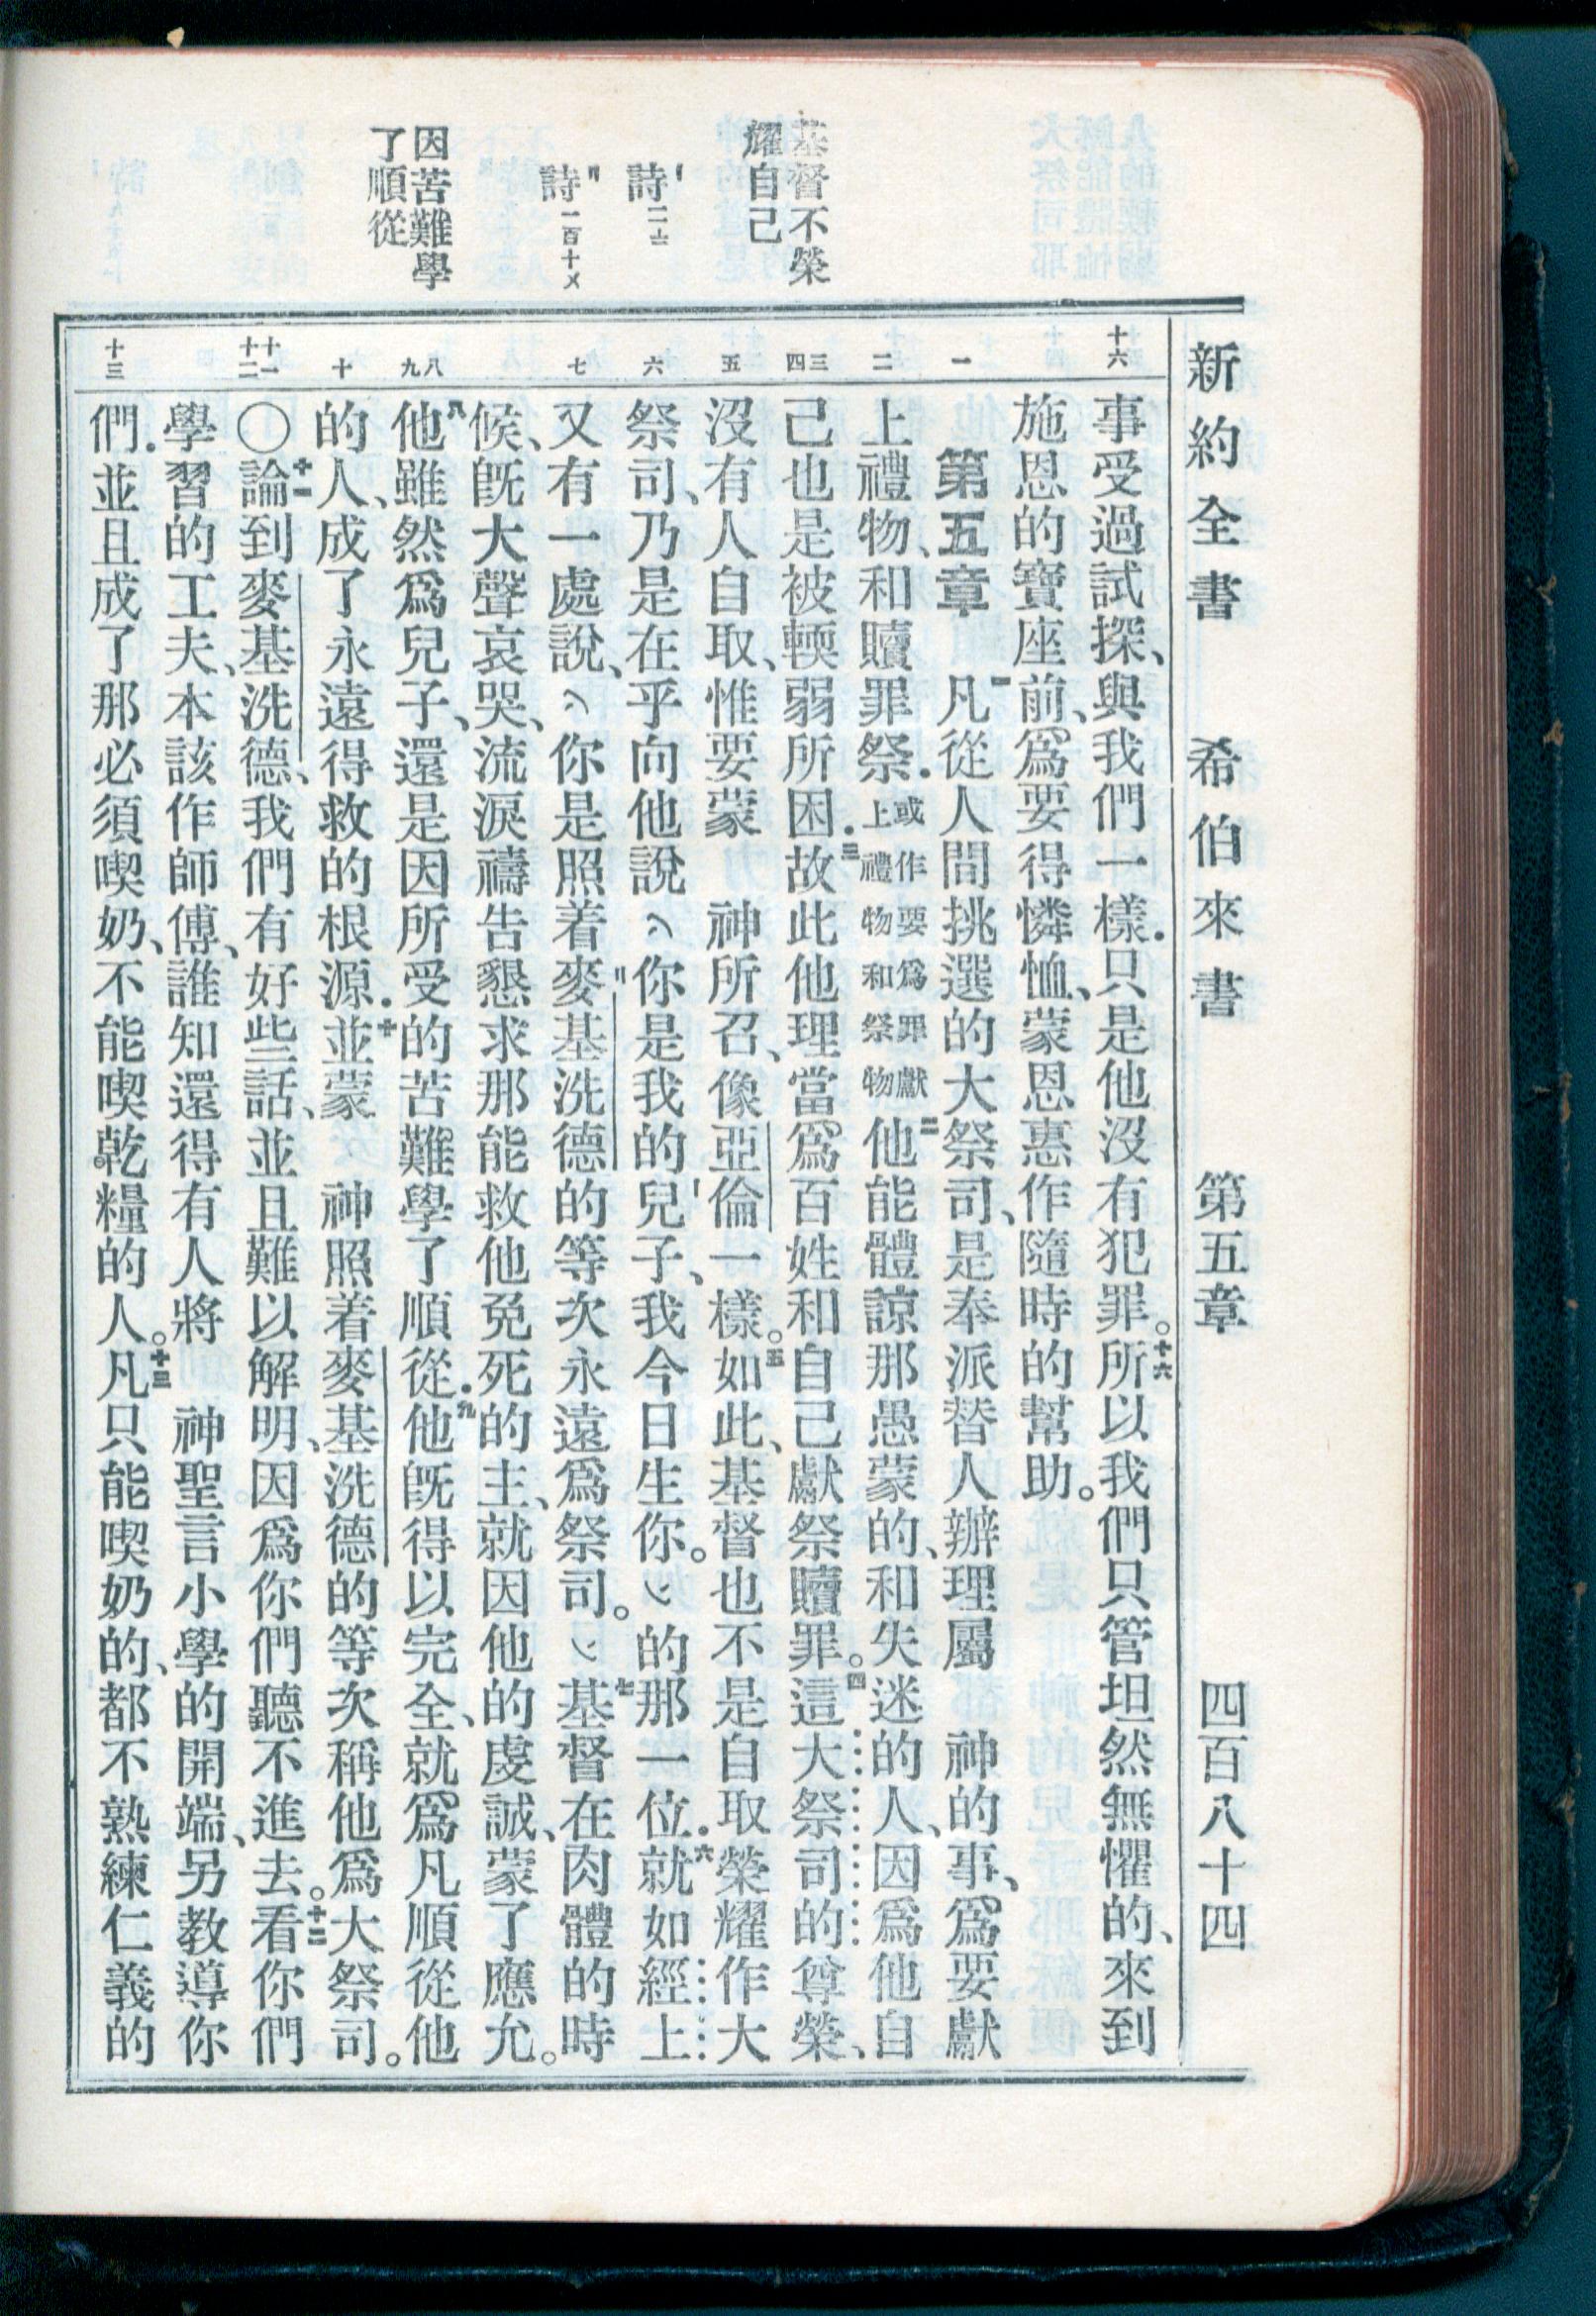 新約全書 希伯來書 第五章 四百八十四
基督不榮
耀自己
詩二
詩一百十
因苦難學
了順從
十六
一
二
三
四
五
六
七
八
九
十
十一
十二
十三
事受過試探、與我們一樣．只是他沒有犯罪。十六所以我們只管坦然無懼的、來到
施恩的寶座前、爲要得憐恤、蒙恩惠作隨時的幫助。
第五章 一凡從人間挑選的大祭司、是奉派替人辦理屬 神的事、爲要獻
上禮物、和贖罪祭．或作要爲罪獻上禮物和祭物二他能體諒那愚蒙的、和失迷的人、因爲他自
己也是被輭弱所困．三故此他理當爲百姓和自己獻祭贖罪。四這大祭司的尊榮、
沒有人自取、惟要蒙 神所召、像亞倫一樣。五如此、基督也不是自取榮耀作大
祭司、乃是在乎向他說﹁你是我的兒子、我今日生你。﹂的那一位．六就如經上
又有一處說、﹁你是照着麥基洗德的等次永遠爲祭司。﹂七基督在肉體的時
候、旣大聲哀哭、流淚禱告懇求那能救他免死的主、就因他的虔誠、蒙了應允。
八他雖然爲兒子、還是因所受的苦難學了順從．九他旣得以完全、就爲凡順從他
的人、成了永遠得救的根源．十並蒙 神照着麥基洗德的等次稱他爲大祭司。
〇十一論到麥基洗德、我們有好些話、並且難以解明、因爲你們聽不進去。十二看你們
學習的工夫、本該作師傅、誰知還得有人將 神聖言小學的開端、另教導你
們．並且成了那必須喫奶、不能喫乾糧的人。十三凡只能喫奶的、都不熟練仁義的